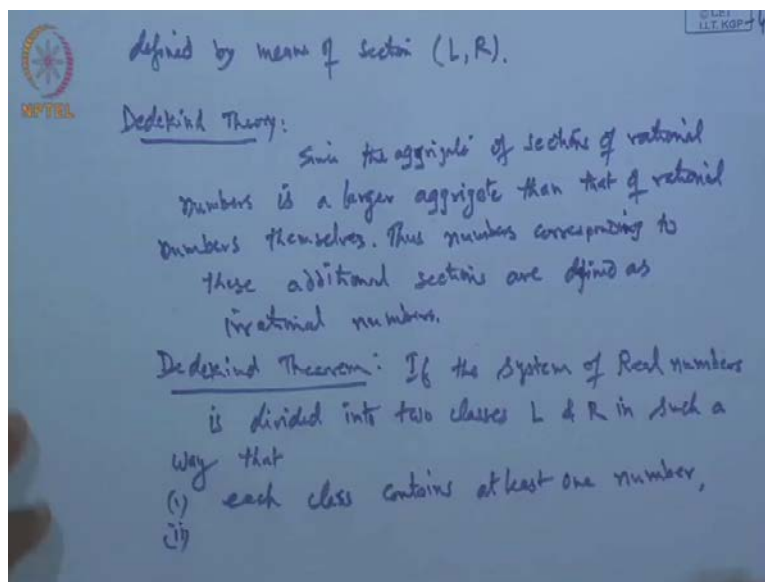 © CET
I.I.T. KGP
defined by means of section (L, R).
NPTEL
Dedekind Theory:
Since the aggrigate of sections of rational
numbers is a larger aggrigate than that of rational
numbers themselves. Thus numbers corresponding to
these additional sections are defined as
irrational numbers.
Dedekind Theorem: If the system of Real numbers
is divided into two classes L & R in such a
way that
(i) each class contains at least one number,
(ii)